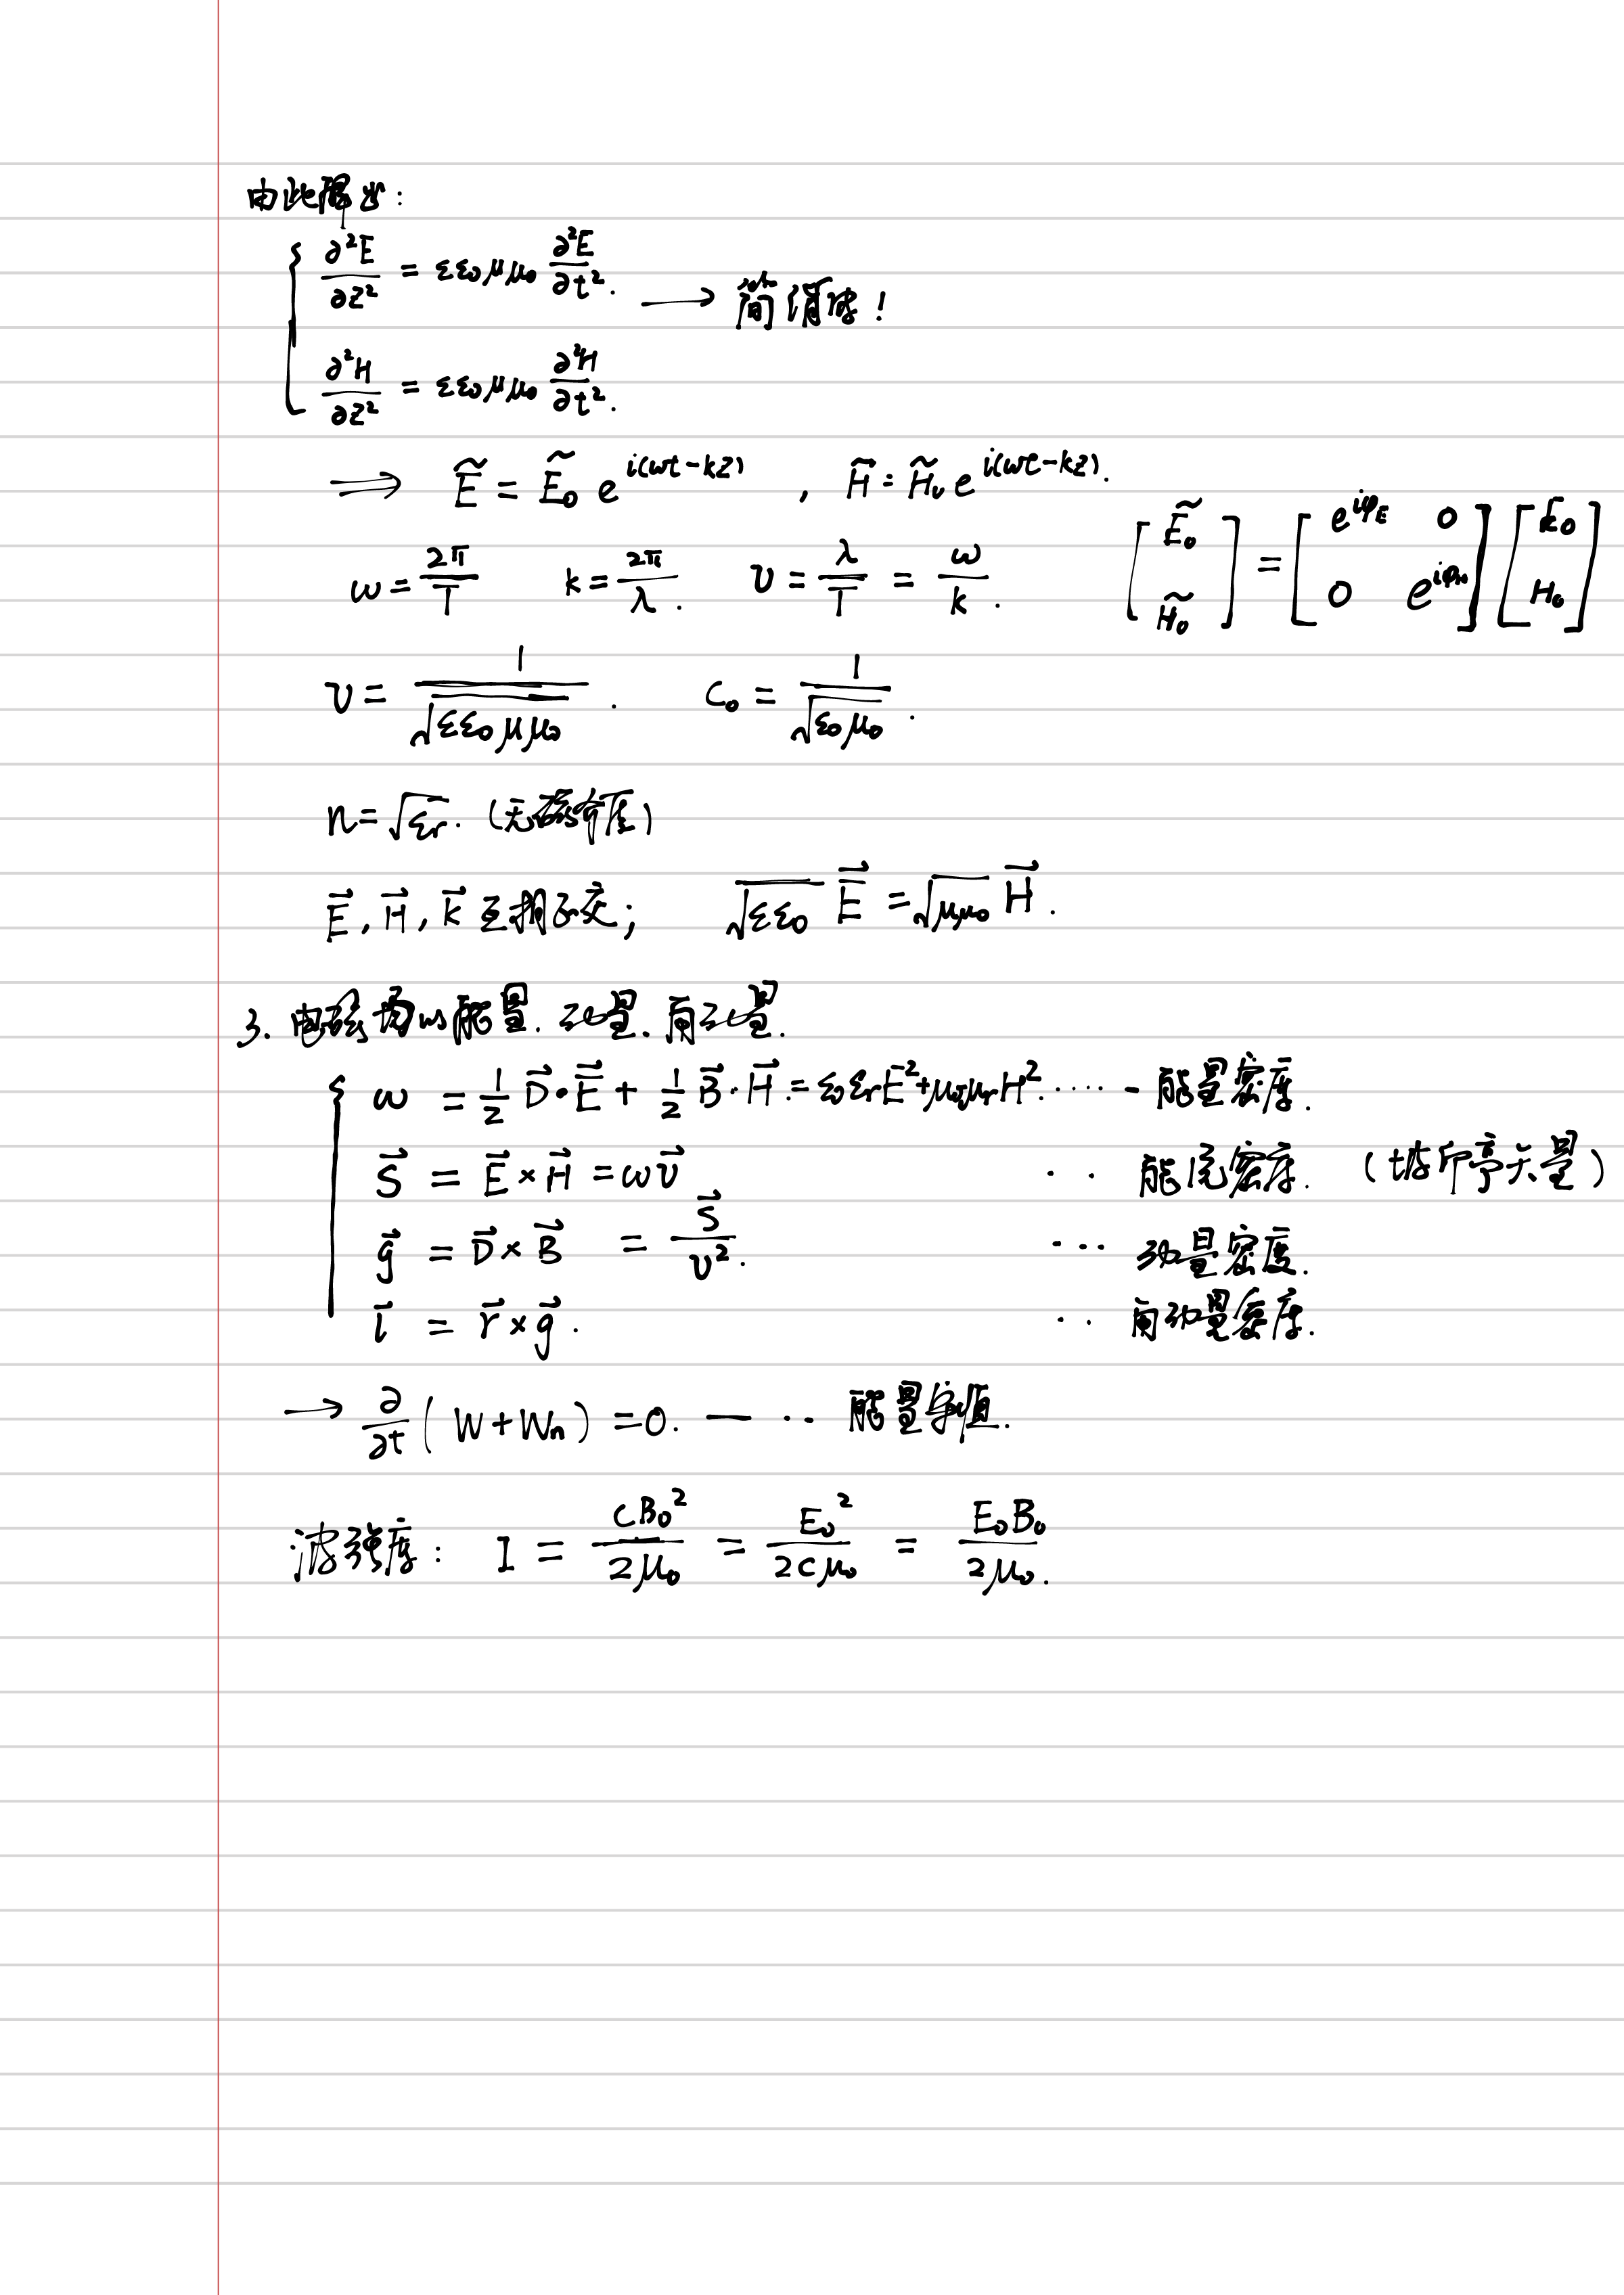 由此解出:
∂²E/∂z² = εε₀μμ₀ ∂²E/∂t². → 简谐波!
∂²H/∂z² = εε₀μμ₀ ∂²H/∂t².
⟹ Ẽ = Ẽ₀ e^{i(ωt-kz)} , H̃ = H̃₀ e^{i(ωt-kz)}.
ω = 2π/T k = 2π/λ. v = λ/T = ω/k. [Ẽ₀ H̃₀] = [e^{iφ_E} 0 0 e^{iφ_H}] [E₀ H₀]
v = 1/√(εε₀μμ₀). c₀ = 1/√(ε₀μ₀).
n = √εr. (无磁介质)
E⃗, H⃗, k⃗ 互相正交; √(εε₀) E⃗ = √(μμ₀) H⃗.
3. 电磁场的能量. 动量. 角动量.
ω = 1/2 D⃗·E⃗ + 1/2 B⃗·H⃗. = ε₀εrE² + μ₀μrH². ····· 能量密度.
S⃗ = E⃗ × H⃗ = ωv⃗ ·· 能流密度. (坡印亭矢量)
g⃗ = D⃗ × B⃗ = S⃗/v². ··· 动量密度.
l⃗ = r⃗ × g⃗. ·· 角动量密度.
→ ∂/∂t (W + Wₙ) = 0. — ·· 能量守恒.
波强度: I = cB₀²/2μ₀ = E₀²/2cμ₀ = E₀B₀/2μ₀.